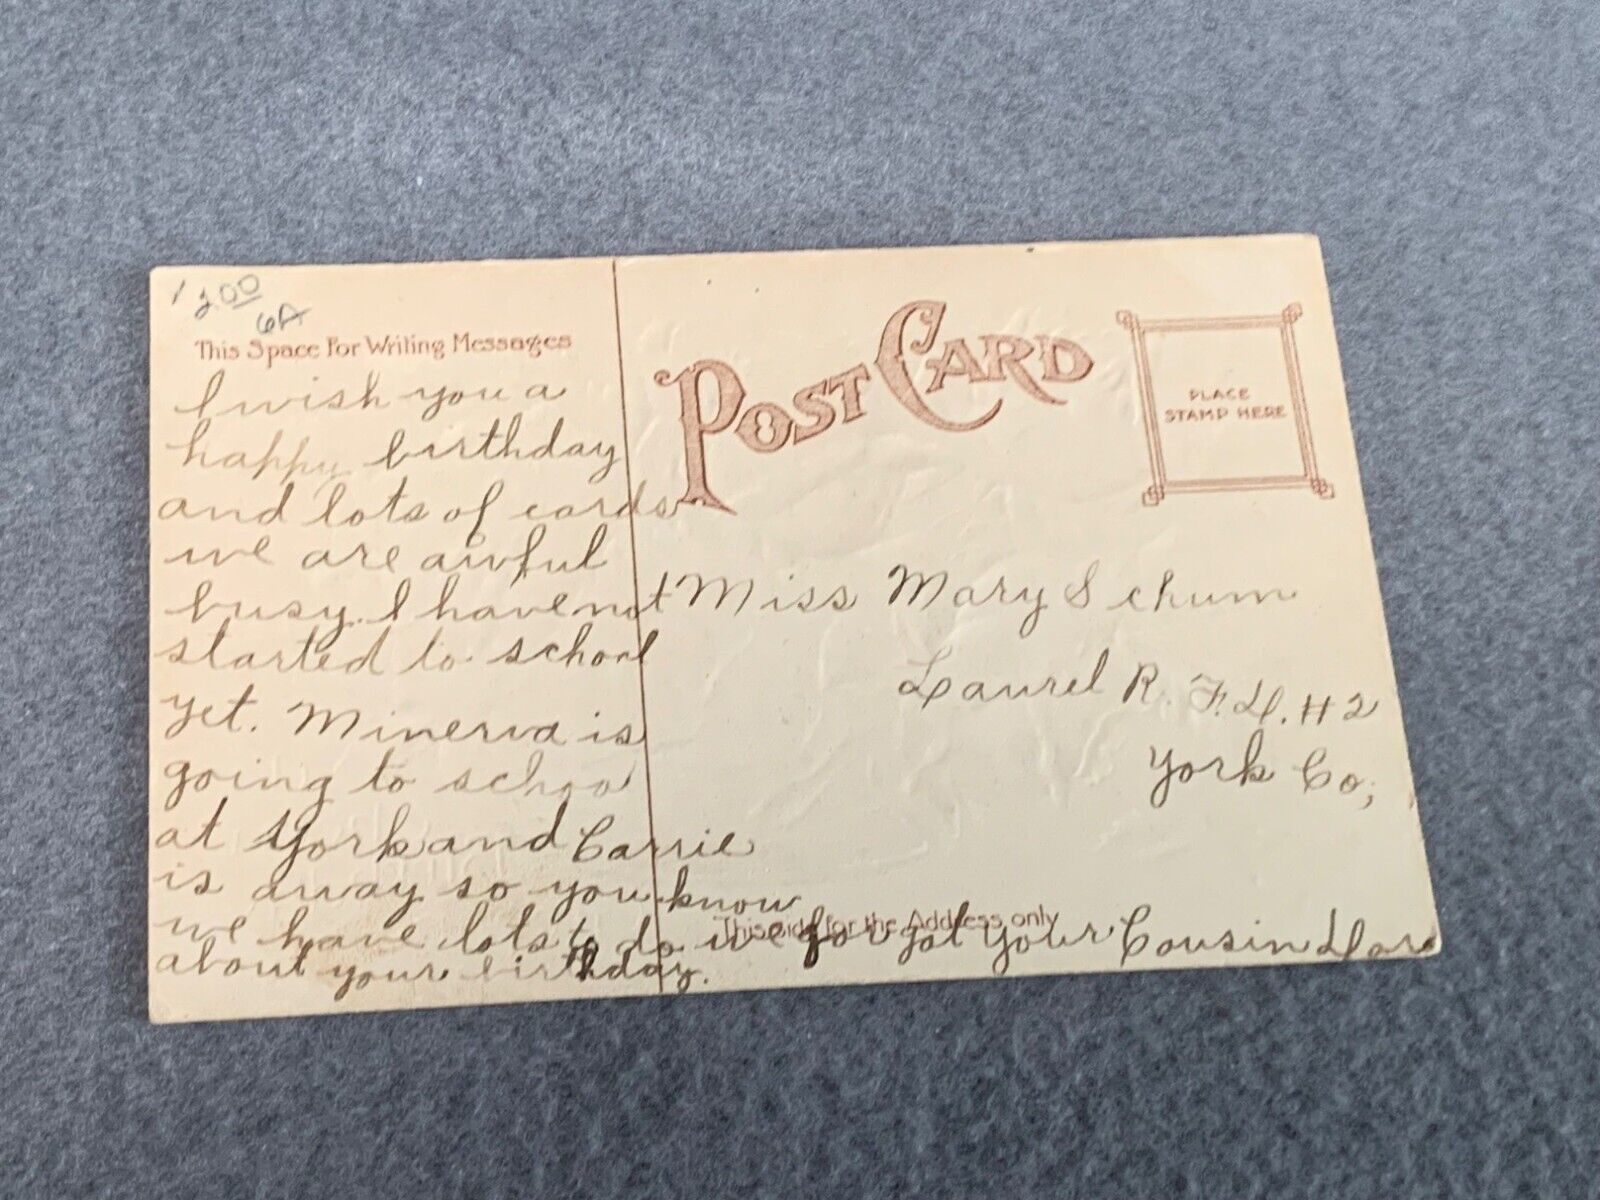 1 2.00
6A
This Space For Writing Messages
I wish you a
happy birthday
and lots of cards
we are awful
busy. I have not
started to school
yet. Minerva is
going to school
at York and Carrie
is away so you know
we have lots to do we forgot your Cousin
about your birthday.
POST CARD
PLACE
STAMP HERE
Miss Mary Schum
Laurel R. F. D. # 2
York Co;
This side for the Address only